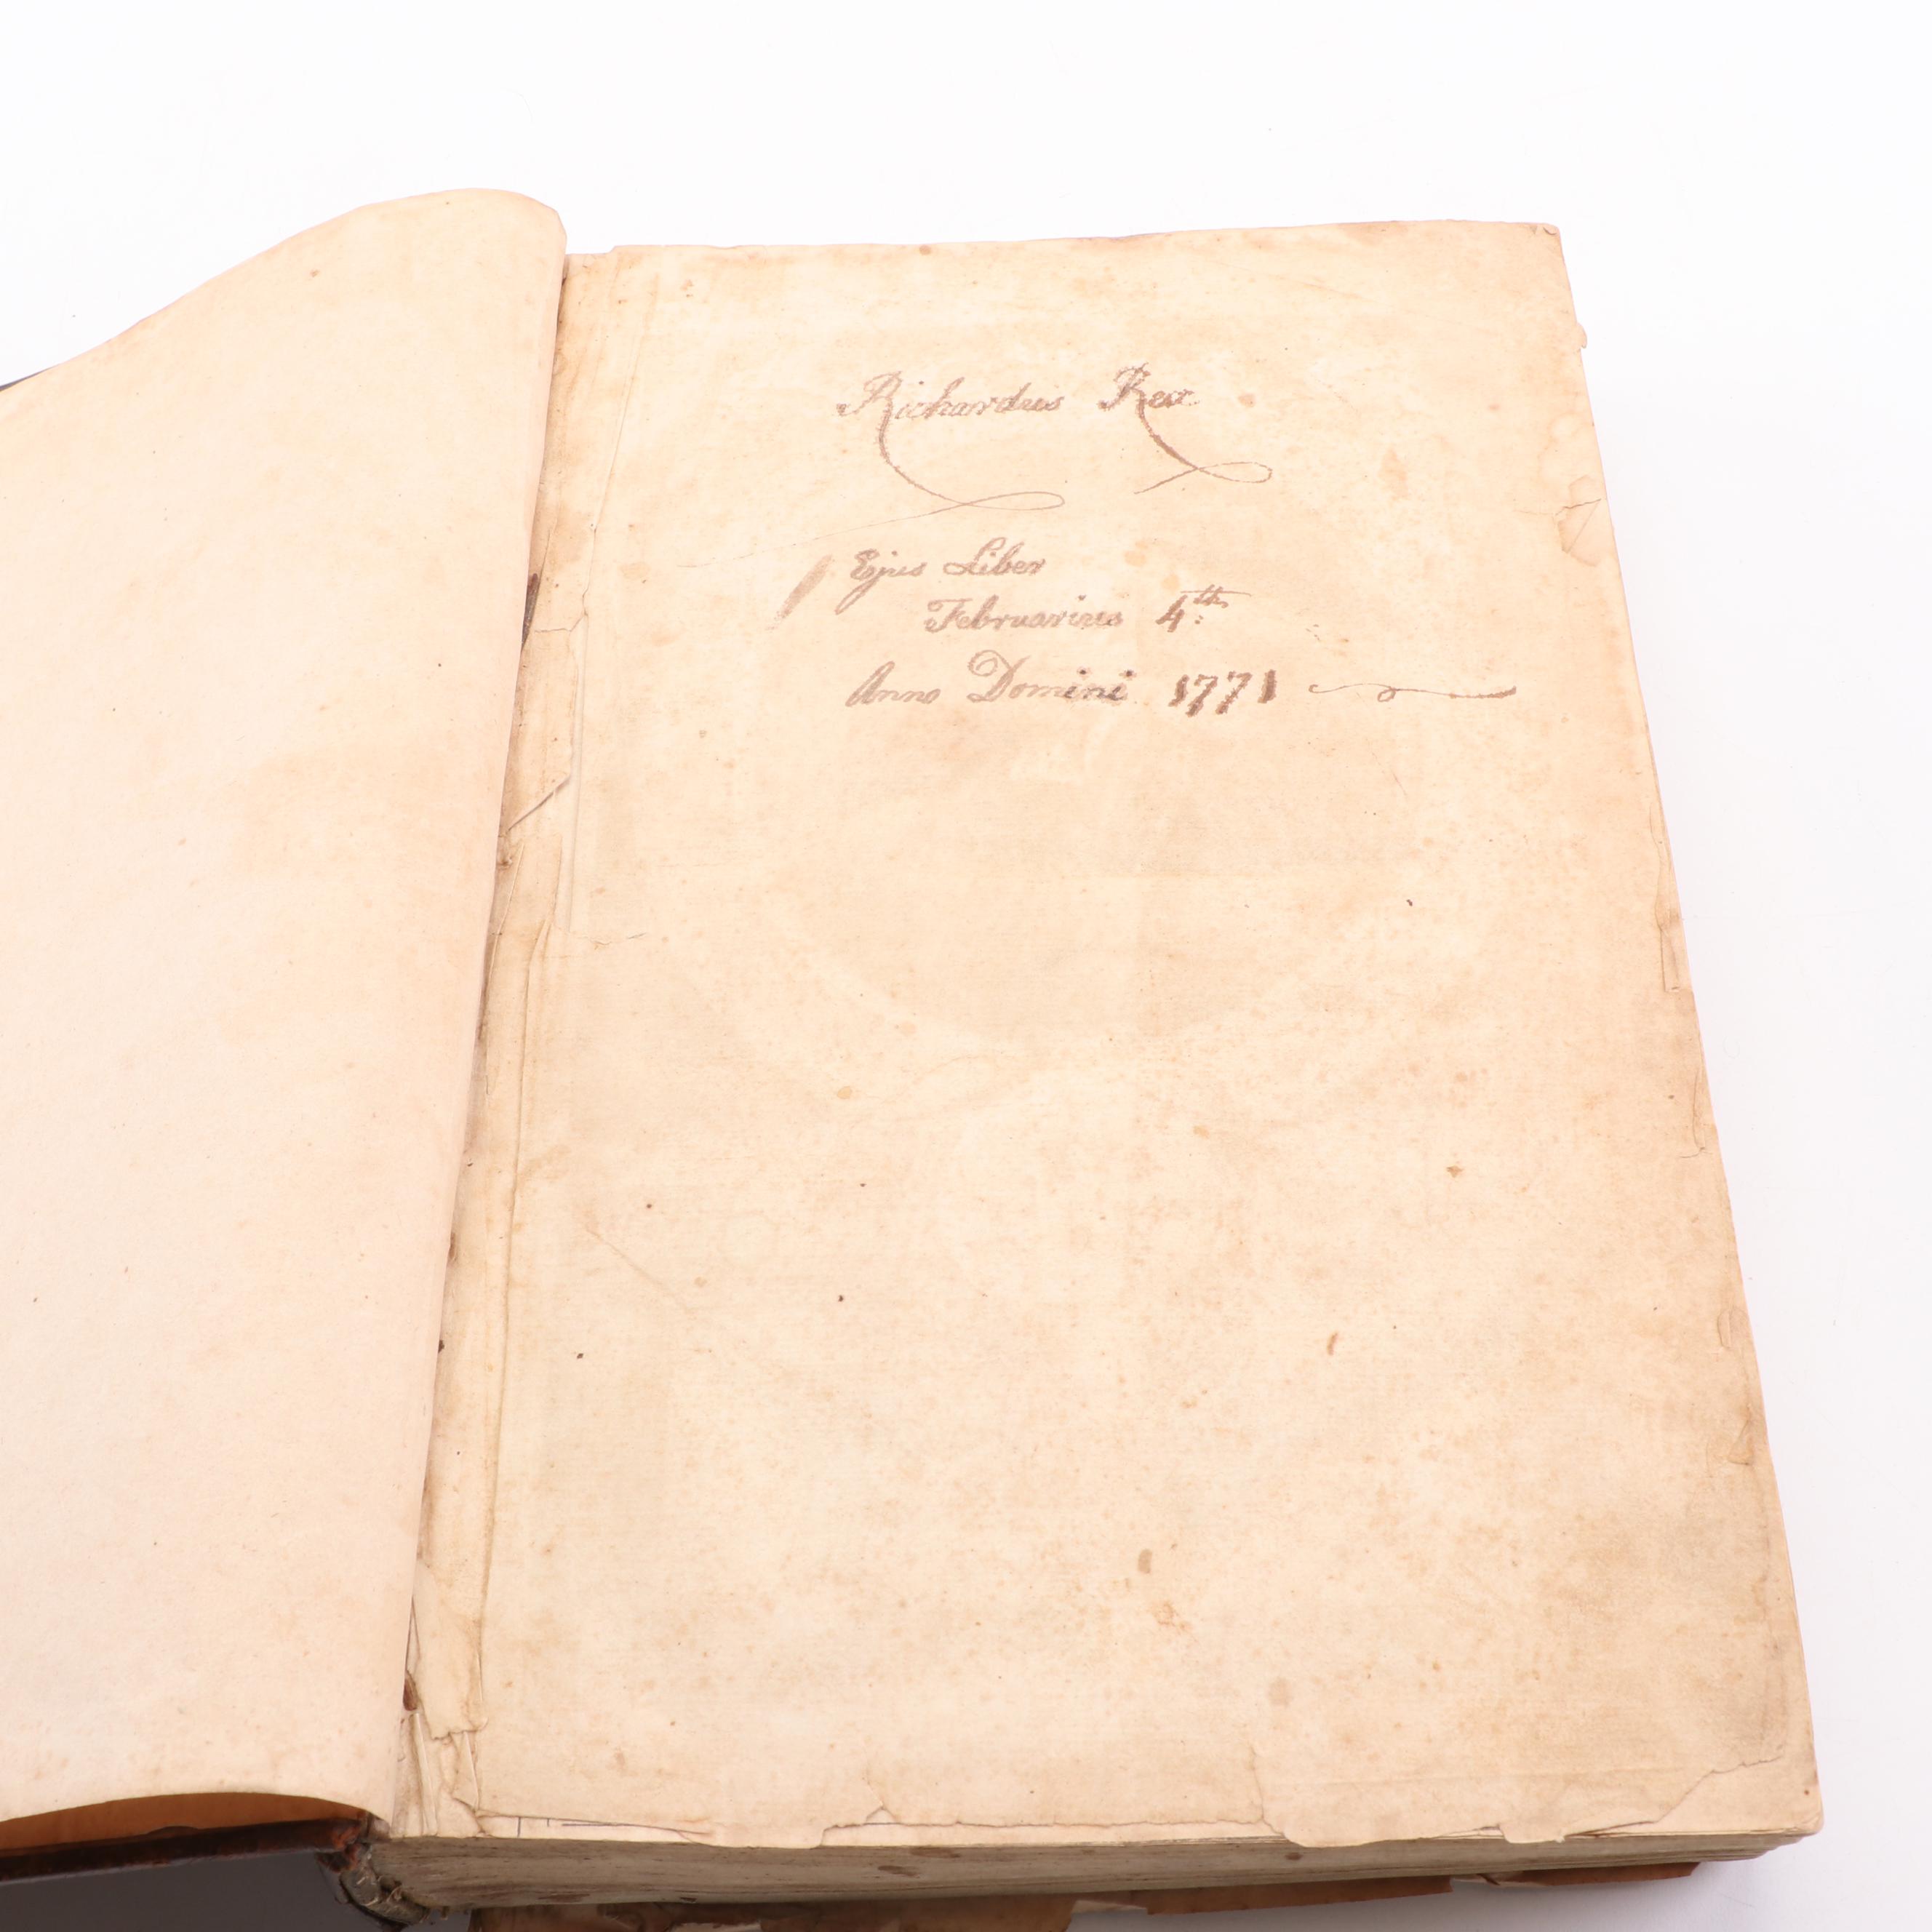 Richardus Rex
Ejus Liber
Februarius 4.th
Anno Domini 1771